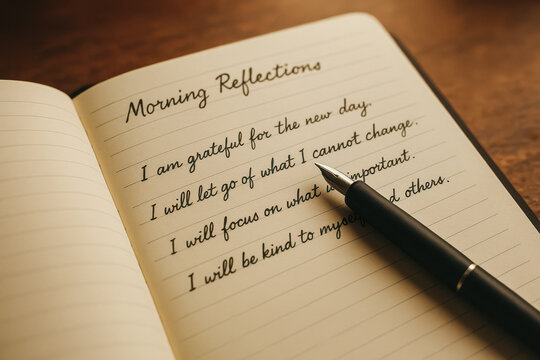 Morning Reflections
I am grateful for the new day.
I will let go of what I cannot change.
I will focus on what is important.
I will be kind to myself and others.